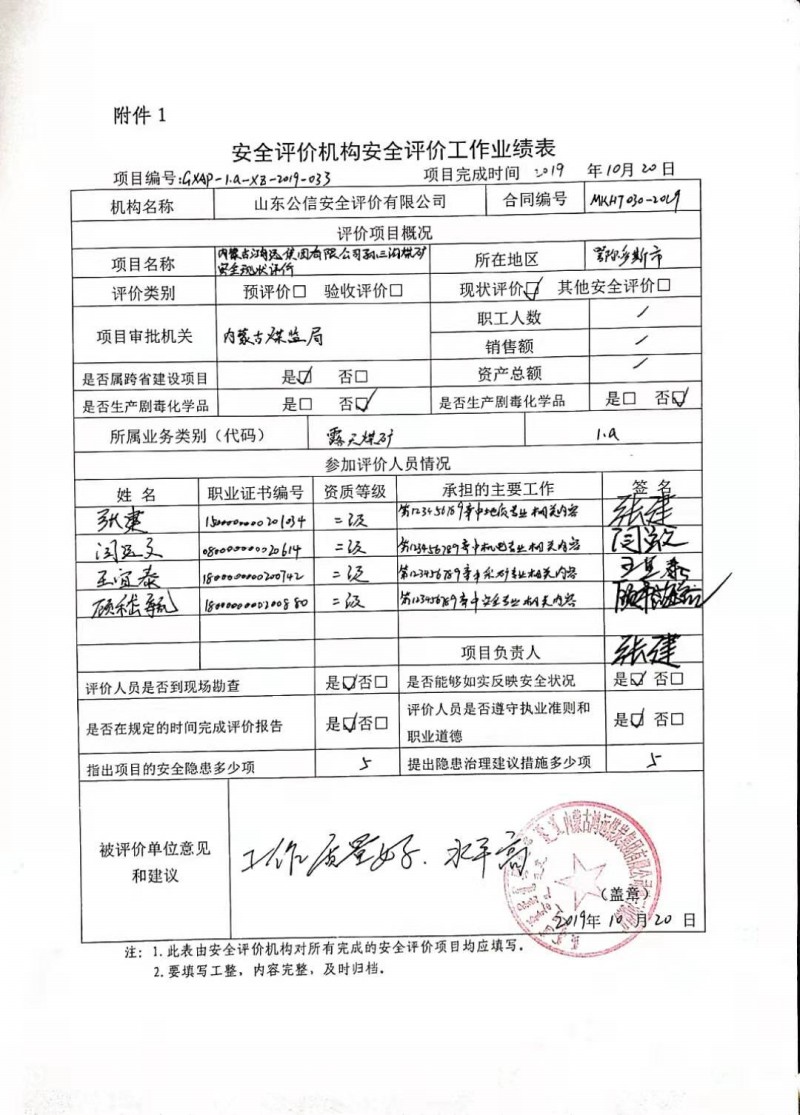 附件 1
安全评价机构安全评价工作业绩表
项目编号:GXAP-1.a-XZ-2019-033 项目完成时间 2019 年10月20日
机构名称 山东公信安全评价有限公司 合同编号 MKHT030-2019
评价项目概况
项目名称 内蒙古 集团有限公司 三沟煤矿 所在地区 鄂尔多斯市
安全现状评价
评价类别 预评价□ 验收评价□ 现状评价☑ 其他安全评价□
项目审批机关 内蒙古煤监局 职工人数 /
销售额 /
是否属跨省建设项目 是☑ 否□ 资产总额 /
是否生产剧毒化学品 是□ 否☑ 是否生产剧毒化学品 是□ 否☑
所属业务类别（代码） 露天煤矿 1.a
参加评价人员情况
姓 名 职业证书编号 资质等级 承担的主要工作 签 名
张建 1500000000201034 二级 第123456789章中地质专业相关内容 张建
闫 文 080000000020614 二级 第123456789章中机电专业相关内容 闫 文
王宜泰 1800000000200742 二级 第123456789章中采矿专业相关内容 王宜泰
顾 1800000000200880 二级 第123456789章中安全专业相关内容 顾
项目负责人 张建
评价人员是否到现场勘查 是☑否□ 是否能够如实反映安全状况 是☑ 否□
是否在规定的时间完成评价报告 是☑否□ 评价人员是否遵守执业准则和职业道德 是☑ 否□
指出项目的安全隐患多少项 5 提出隐患治理建议措施多少项 5
被评价单位意见和建议 工作质量好、水平高
（盖章）
2019年 10 月 20 日
注：1.此表由安全评价机构对所有完成的安全评价项目均应填写。
2.要填写工整，内容完整，及时归档。